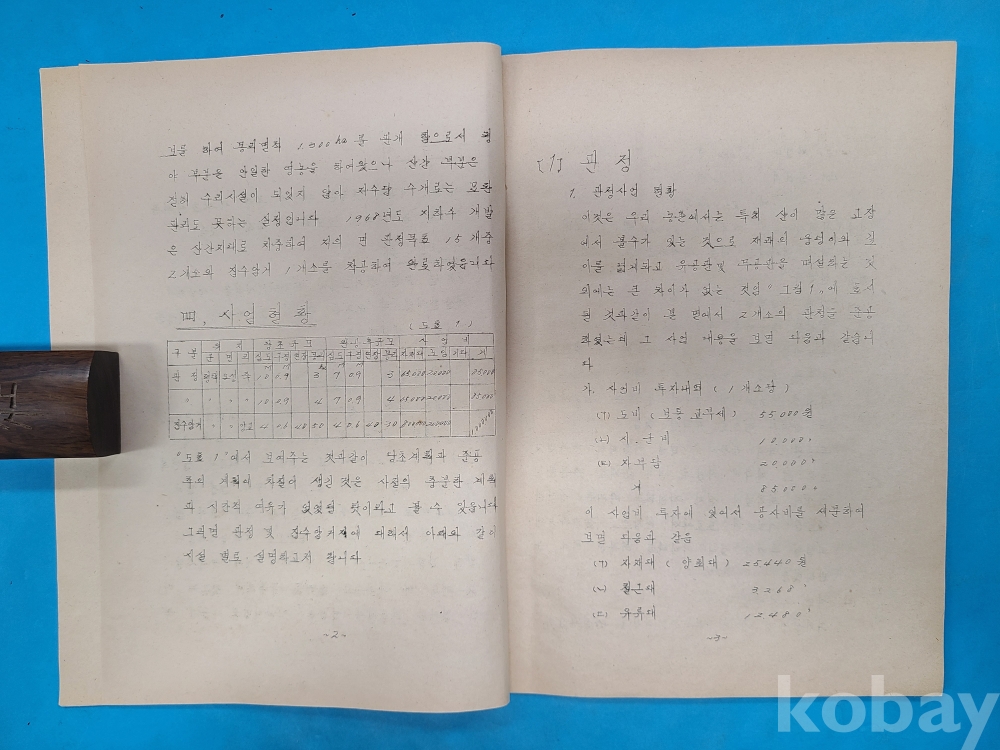 보를 하여 몽리면적 1.500ha를 관개 함으로서 평
야 부분은 안일한 영농을 하여왔으나 산간 부분은
전혀 수리시설이 되있지 않아 재수답 수개로는 모판
관리도 못하는 실정입니다 1968년도 지하수 개발
은 산간지대로 치중하여 저의 면 관정목표 15개중
2개소와 집수암거 1개소를 착공하여 완료하였읍니다
四. 사업현황
(도표 1)
구분 당초 사업비
군 면 리 심도 구경 연장 심도 구경 연장 자재대 노임 기타 계
관정 10 0.9 3 7 0.9 3 65,000 20,000 85,000
〃 〃 10 0.9 4 7 0.9 4 65,000 20,000 85,000
집수암거 〃 〃 4 0.6 40 50 4 0.6 40
"도표 1"에서 보여주는 것과같이 당초계획과 준공
후의 계획이 차질이 생긴것은 사전의 충분한 계획
과 시간적 여유가 없었던 탓이라고 볼 수 있읍니다
그러면 관정 및 집수암거에 대해서 아래와 같이
시설 별로 설명하고저 합니다
-2-
(1) 관정
1. 관정사업 현황
이것은 우리 농촌에서는 특히 산이 많은 고장
에서 볼수가 있는 것으로 재래의 웅덩이와 깊
이를 깊게하고 유공관및 무공관을 매설하는 것
외에는 큰 차이가 없는 것임 "그림1"에 표시
된 것과같이 본 면에서 2개소의 관정을 준공
하였는데 그 사업 내용을 보면 다음과 같습니
다
가. 사업비 투자내역 (1개소당)
(ㄱ) 도비 (보통 교부세) 55,000원
(ㄴ) 시.군비 10,000〃
(ㄷ) 자부담 20,000〃
계 85,000〃
이 사업비 투자에 있어서 공사비를 세분하여
보면 다음과 같음
(ㄱ) 자재대 (양회대) 25440원
(ㄴ) 철근대 9268〃
(ㄷ) 유류대 12480〃
-3-
kobay